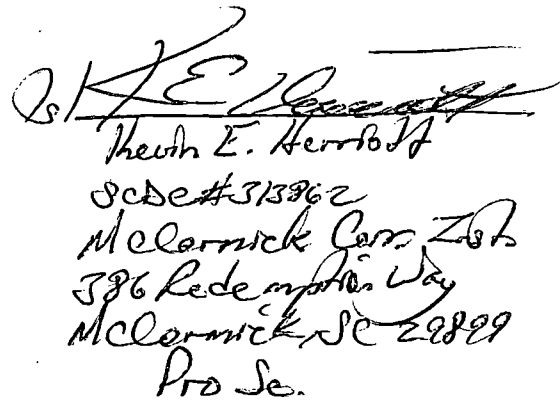 /s/ K E Herriott
Kevin E. Herriott
SCDC #313862
McCormick Corr. Inst.
386 Redemption Way
McCormick, SC 29899
Pro Se.